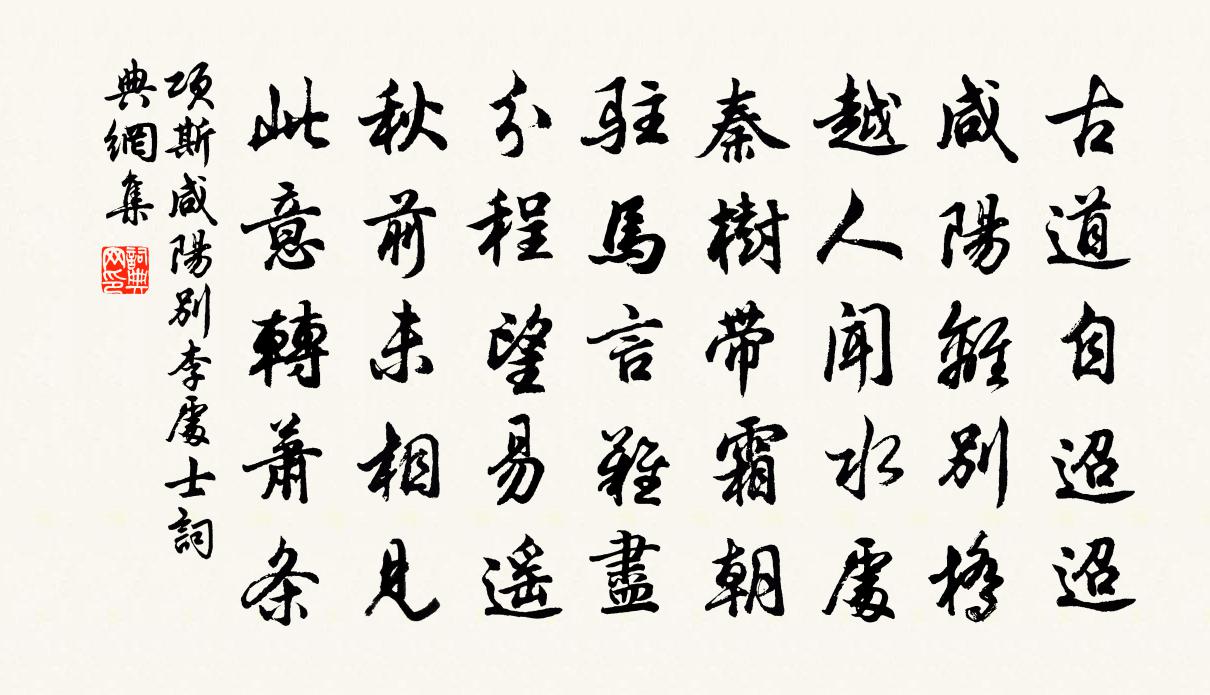 古道自迢迢
咸陽離別橋
越人聞水處
秦樹帶霜朝
駐馬言難盡
分程望易遥
秋前未相見
此意轉蕭条
項斯咸陽別李處士詞
典網集
詞典
网印